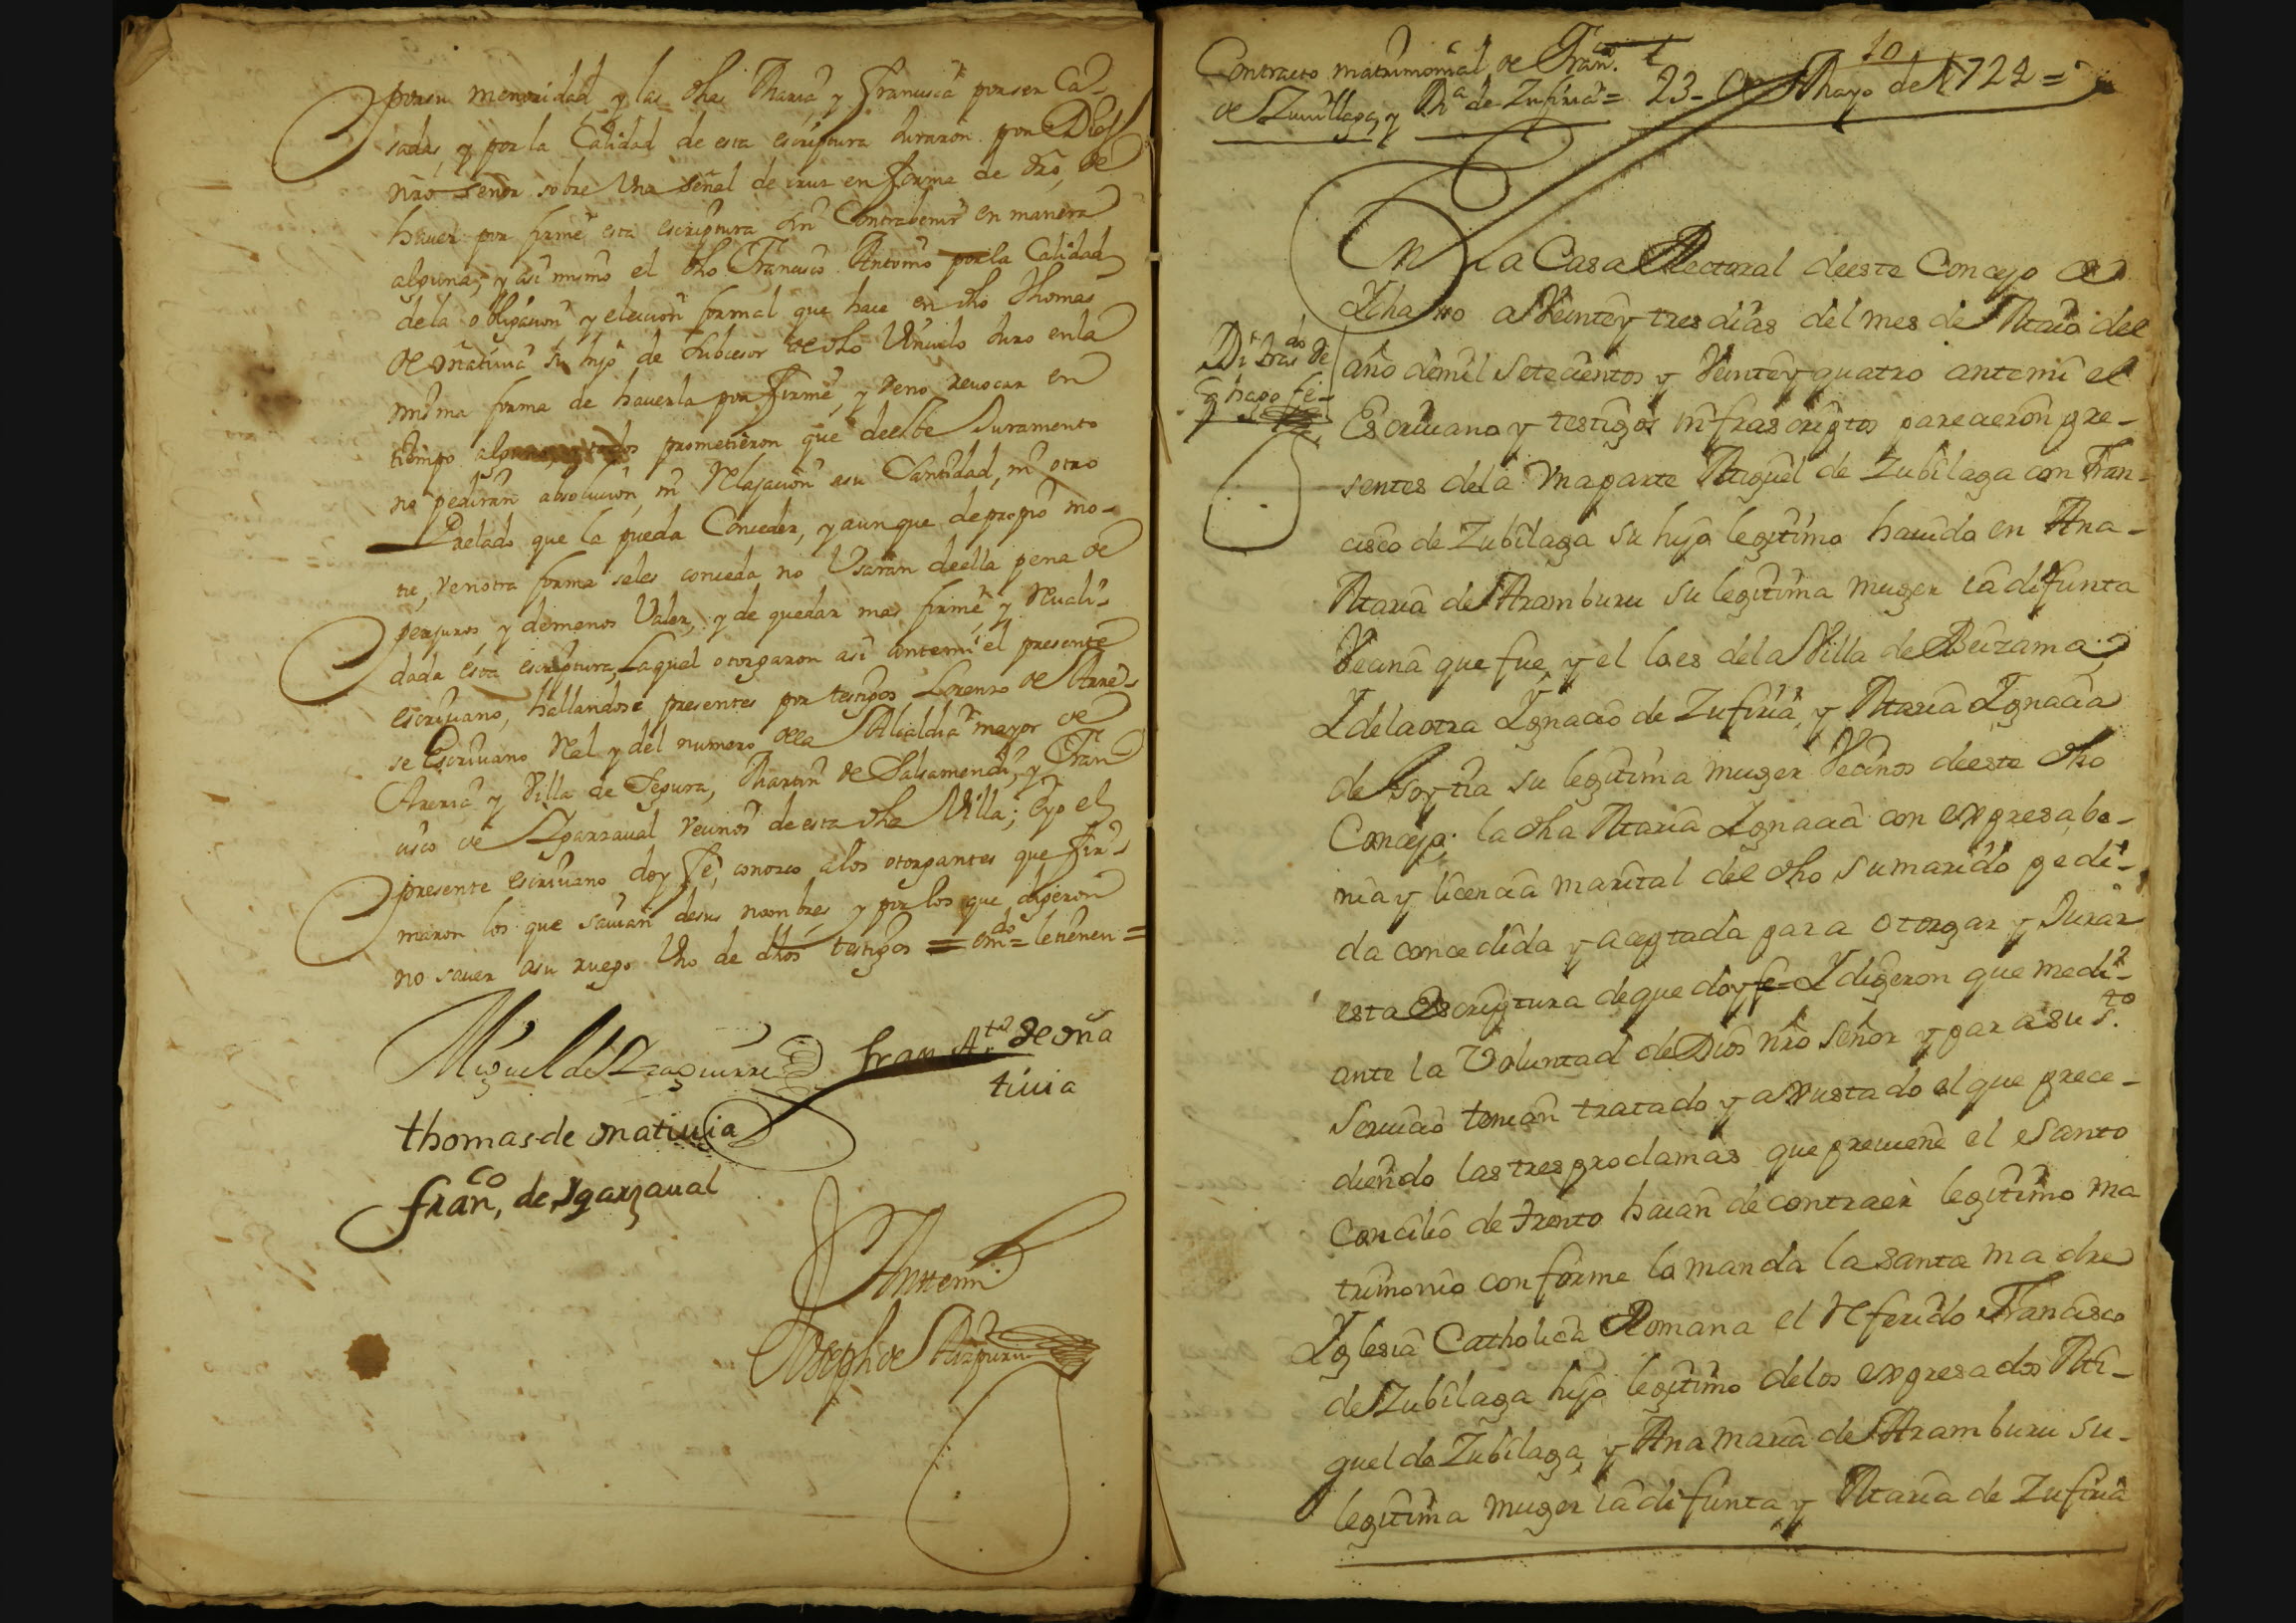 por su menoridad, y las dhas Maria y Francisca por ser Ca-
sadas, y por la Calidad de esta escriptura Juraron por Dios
nro Señor sobre Una señal de cruz en forma de dro, de
hauer por firme esta escriptura sin Contrabenir en manera
alguna; y asi mismo el dho Francisco Antonio por la Calidad
de la obligacion y eleccion formal que hace en dho Thomas
de Onatiuia su hijo de Subcesor de dho Vinculo Juro en la
misma forma de hauerla por firme, y de no reuocar en
tiempo alguno, y todos prometieron que de este Juramento
no pediran absolucion, ni Relajacion a su Santidad, ni otro
Prelado que la pueda Conceder, y aunque de propio mo-
tu, y en otra forma se les conceda no Usaran de ella pena de
perjuros, y de menos Valer, y de quedar mas firme, y Reuali-
dada esta escriptura, La qual otorgaron asi ante mi el presente
escriuano, hallandose presentes por testigos Lorenzo de Arre-
se Escriuano Real y del numero de la Alcaldia mayor de
Areria y Villa de Segura, Martin de Salsamendi, y Fran
cisco de Ygarzaual vecinos de esta dha Villa; E yo el
presente escriuano doy fe, conozco a los otorgantes que fir-
maron los que sauian de sus nombres, y por los que dijeron
no sauer a su ruego Uno de dhos testigos = em.do = le tienen =
Miguel de Yzaguirre fran Ant.o de Oña
tiuia
thomas de onatiuia
fran.co de Ygarzaual
Ante mi
Joseph de Aizpuru
Contracto matrimonial de Fran.co
de Zuuillaga, y M.a de Zufiria = 23 de Mayo de 1724 =
10
En la Casa Rectoral de este Concejo de
Ycha so a Veinte y tres dias del mes de Maio del
Di tras.do de
q hago fe-
año de mil setecientos y Veinte y quatro ante mi el
Escriuano y testigos infrascriptos parecieron pre-
sentes de la Una parte Miguel de Zubilaga con Fran-
cisco de Zubilaga su hijo legitimo hauido en Ana-
Maria de Aramburu su legitima muger ia difunta
Vecina que fue, y el lo es de la Villa de Beizama,
Y de la otra Ygnacio de Zufiria, y Maria Ygnacia
de su legitima muger Vecinos de este dho
Concejo; la dha Maria Ygnacia con expresa be-
nia y licencia marital del dho su marido pedi-
da concedida y aceptada para otorgar y Jurar
esta Escriptura de que doy fe- Y digeron que medi-
ante la Voluntad de Dios nro señor y para su s.to
Seruicio tenian tratado y ajustado el que prece-
diendo las tres proclamas que preuiene el santo
Concilio de trento haian de contraer legitimo ma
trimonio conforme lo manda la santa madre
Yglesia Catholica Romana el Referido Francisco
de Zubilaga hijo legitimo de los expresados Mi-
guel de Zubilaga, y Ana maria de Aramburu su-
legitima muger ia difunta y Maria de Zufiria